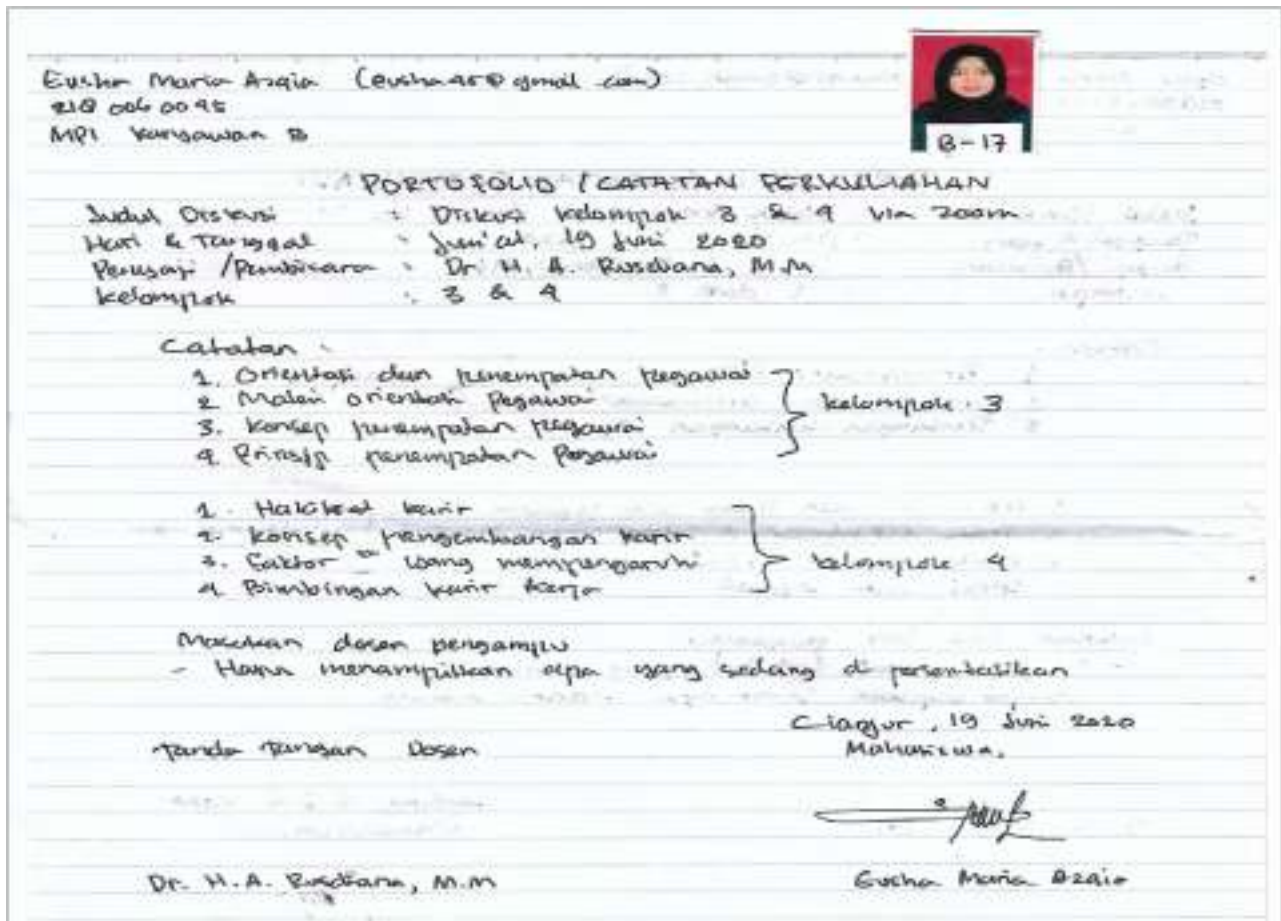 Eusha Maria Azqia (eusha95@gmail.com)
218 006 0095
MPI Karyawan B
B-17
PORTOFOLIO / CATATAN PERKULIAHAN
Judul Diskusi : Diskusi kelompok 3 & 4 via zoom
Hari & Tanggal : Jum'at, 19 Juni 2020
Penyaji / Pembicara : Dr. H. A. Rusdiana, M.M
kelompok : 3 & 4
Catatan :
1. Orientasi dan penempatan pegawai
2. Materi orientasi Pegawai
3. Konsep penempatan pegawai
4. Prinsip penempatan Pegawai
kelompok 3
1. Hakikat karir
2. konsep pengembangan karir
3. Faktor yang mempengaruhi
4. Bimbingan karir kerja
kelompok 4
Masukan dosen pengampu
- Harus menampilkan apa yang sedang di persentasikan
Cianjur, 19 Juni 2020
Tanda Tangan Dosen
Mahasiswa,
Dr. H. A. Rusdiana, M.M
Eusha Maria Azqia